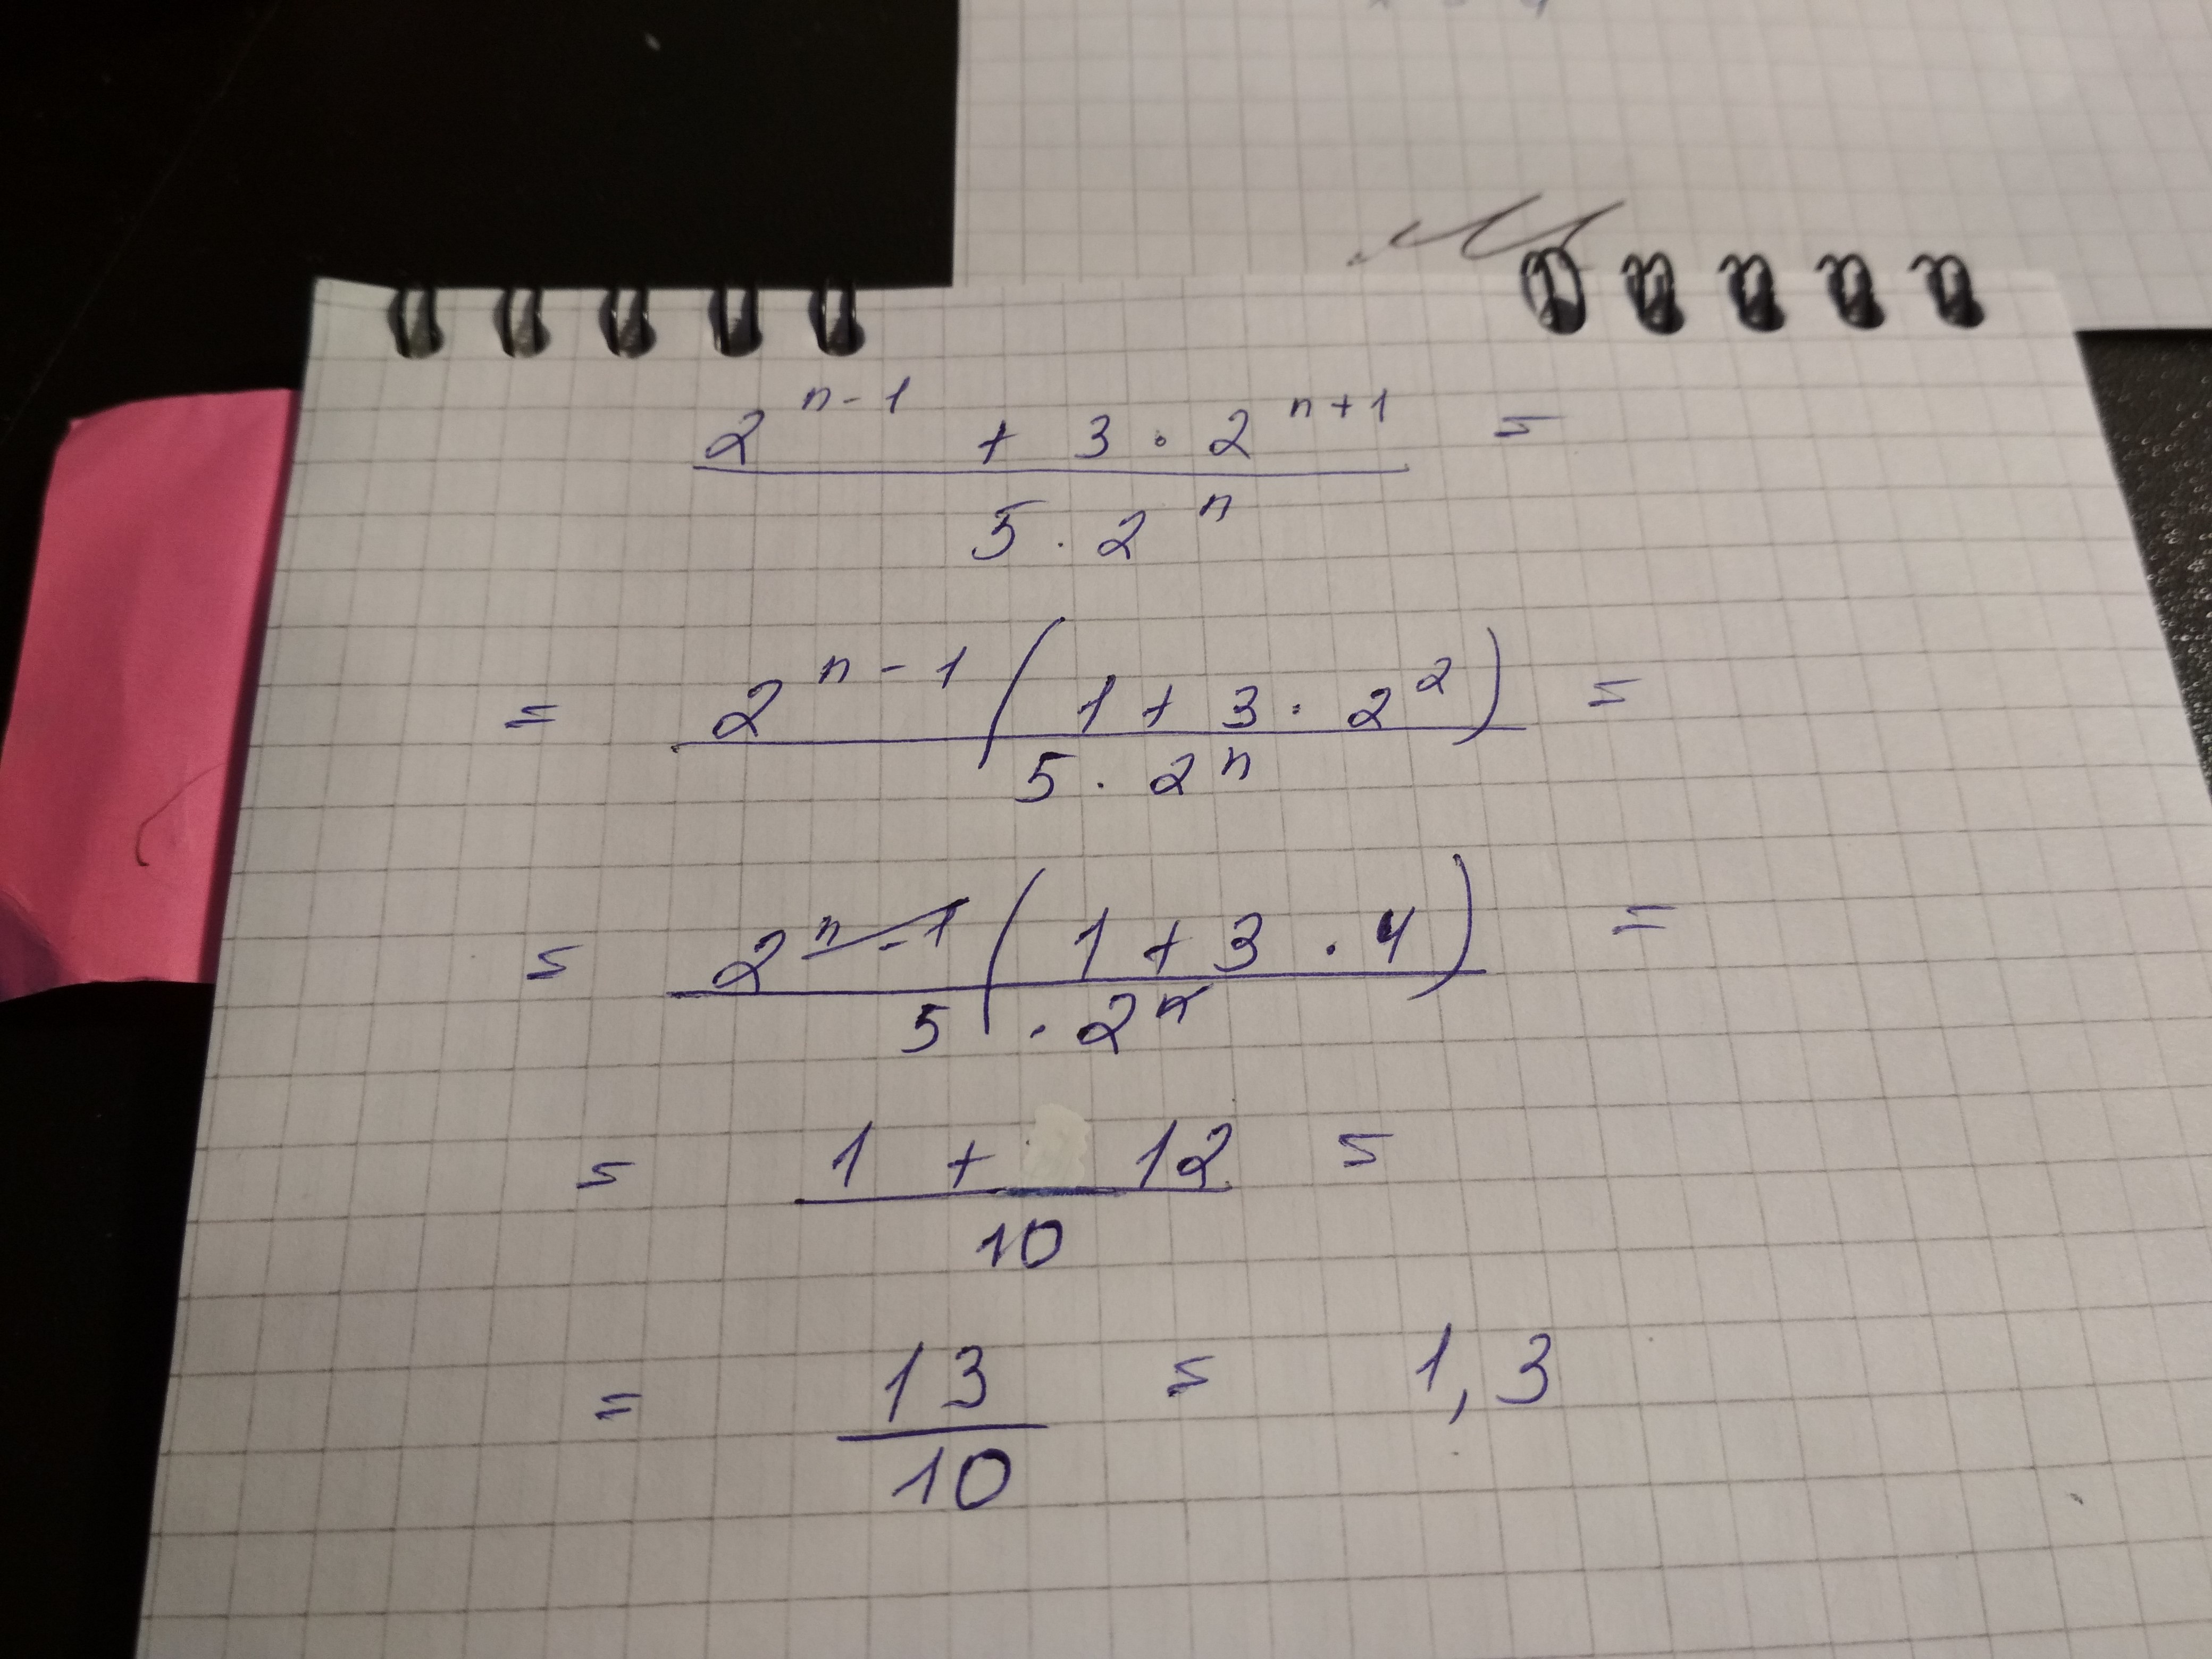 2^{n-1} + 3 · 2^{n+1} =
5 · 2^n
= 2^{n-1} ( 1 + 3 · 2^2 ) =
5 · 2^n
= 2^{n-1} ( 1 + 3 · 4 ) =
5 · 2^n
= 1 + 12 =
10
= 13 = 1,3
10